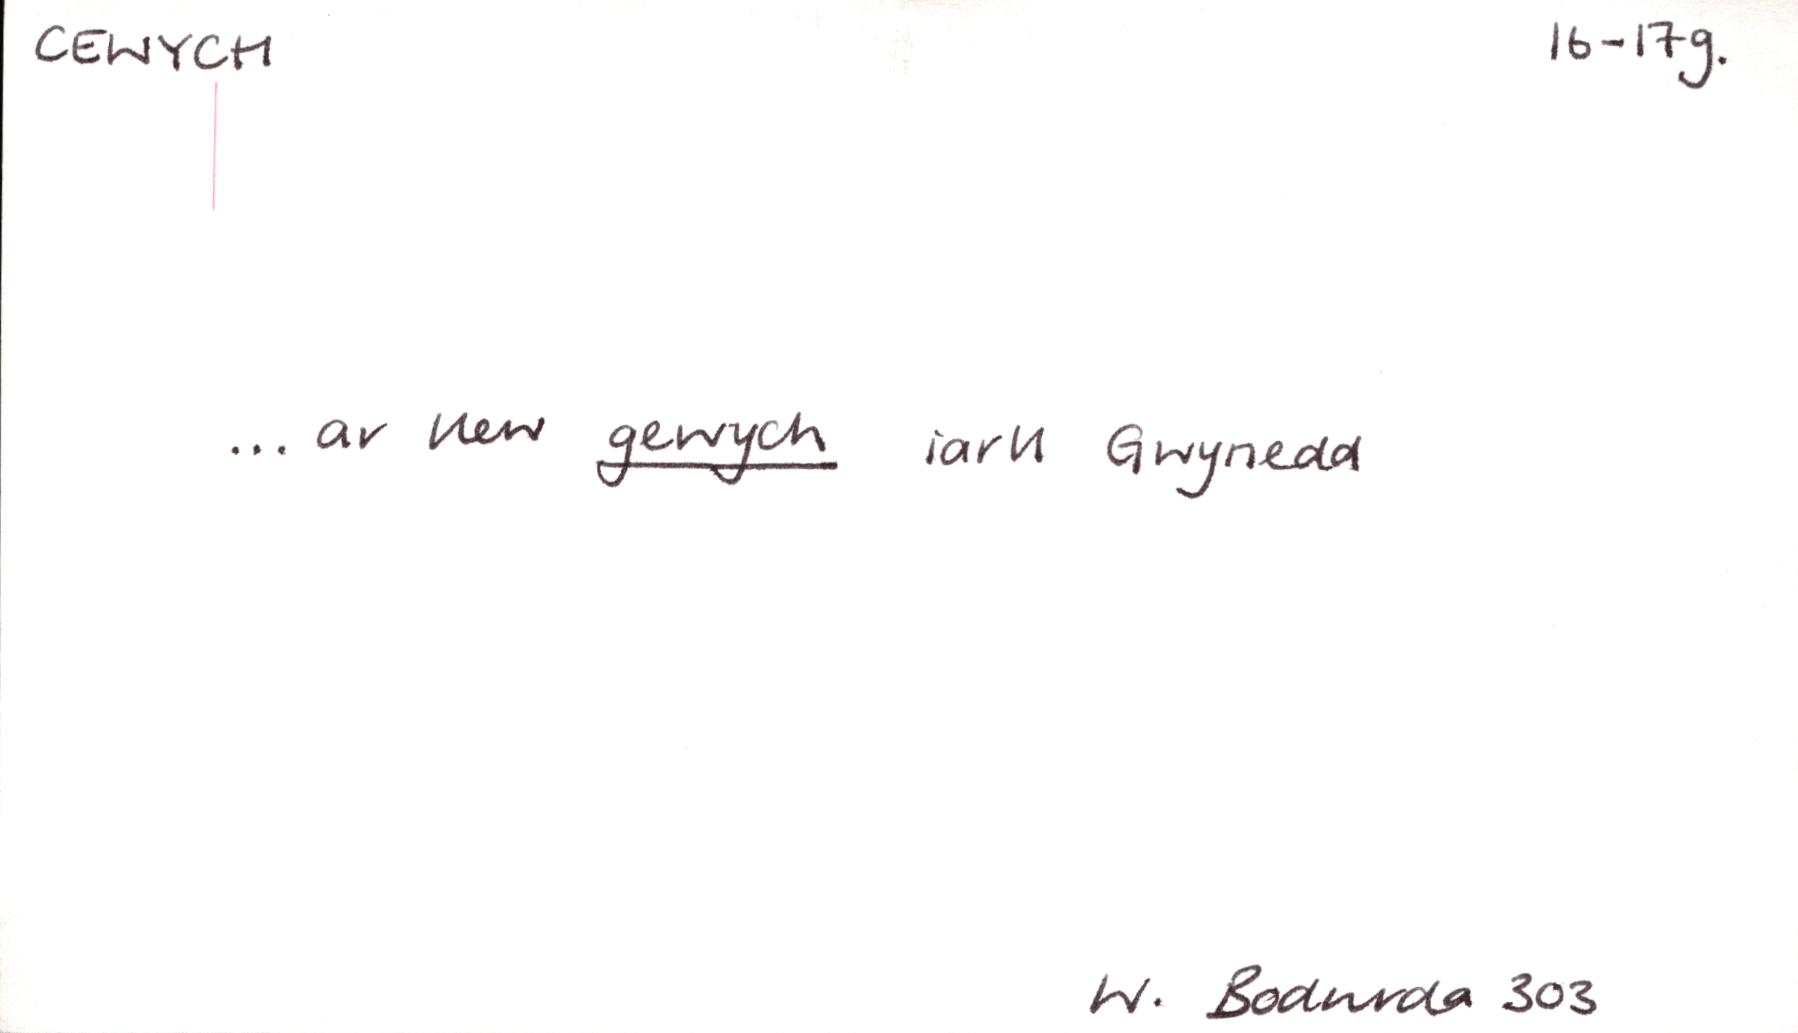 CEWYCH 16-17g.
... ar llew gewych iarll Gwynedd
W. Bodwrda 303